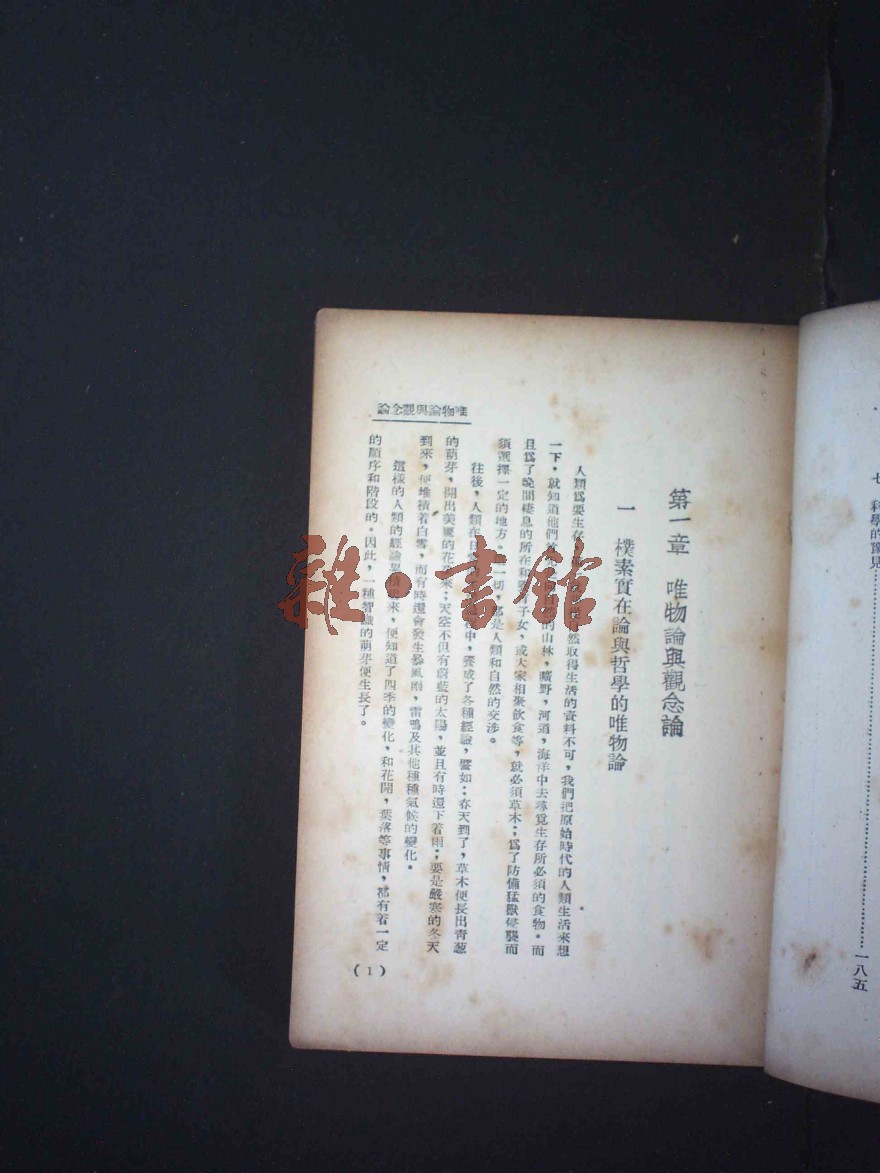 七 科學的豫見……一八五
第一章 唯物論與觀念論
一 樸素實在論與哲學的唯物論
人類爲要生存 然取得生活的資料不可，我們把原始時代的人類生活來想
一下，就知道他們 的山林，曠野，河道，海洋中去尋覓生存所必須的食物。而
且爲了晚間棲息的所在和 子女，或大家相聚飲食等，就必須草木；爲了防備猛獸侵襲而
須選擇一定的地方。 一切，都是人類和自然的交涉。
往後，人類在日常 中，養成了各種經驗，譬如：春天到了，草木便長出青葱
的萌芽，開出美麗的花 來；天空不但有蔚藍的太陽，並且有時還下着雨；要是嚴寒的冬天
到來，便堆積着白雪，而有時還會發生暴風雨，雷鳴及其他種種氣候的變化。
這樣的人類的經論累積起來，便知道了四季的變化，和花開，葉落等事情，都有着一定
的順序和階段的。因此，一種智識的萌芽便生長了。
唯物論與觀念論
(1)
雜·書館